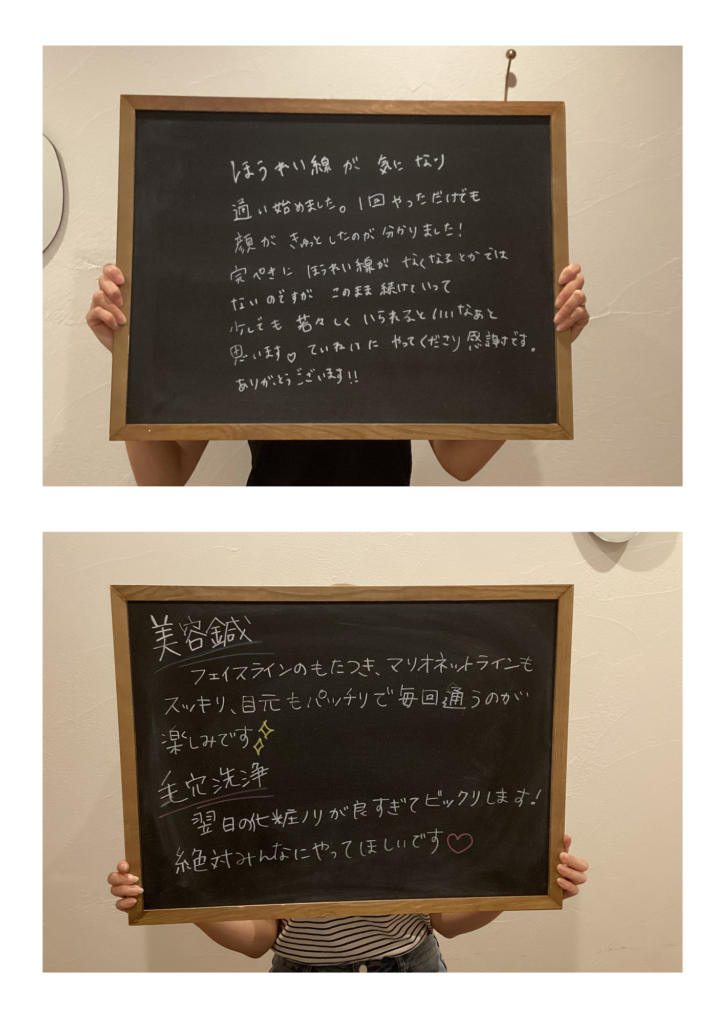 ほうれい線が 気になり
通い始めました。1回やっただけでも
顔が きゅっとしたのが分かりました!
完ぺきに ほうれい線が なくなるとかでは
ないのですが このまま続けていって
少しでも 若々しく いられるといいなぁと
思います♡ ていねいに やってくださり 感謝です。
ありがとうございます!!
美容鍼
フェイスラインのもたつき、マリオネットラインも
スッキリ、目元もパッチリで毎回通うのが
楽しみです
毛穴洗浄
翌日の化粧ノリが良すぎてビックリします!
絶対みんなにやってほしいです♡